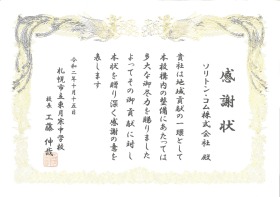 感謝状
ソリトン・コム株式会社 殿
貴社は地域貢献の一環として
本校構内の整備にあたっては
多大な御尽力を賜りました
よってその御貢献に対し
本状を贈り深く感謝の意を
表します
令和二年十月十五日
札幌市立東月寒中学校
校長 工藤 伸哉